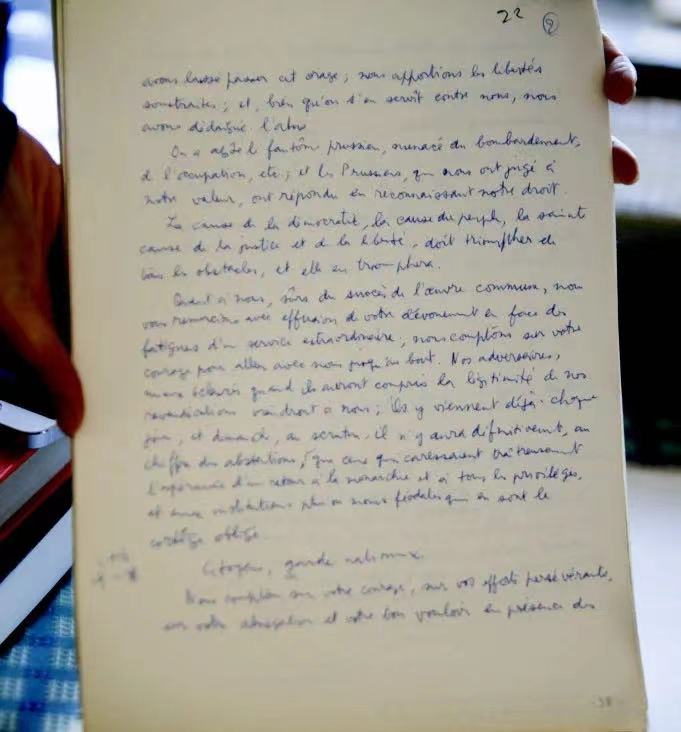 22 2
avons laissé passer cet orage; nous apportions les libertés
soustraites; et, bien qu'on s'en servît contre nous, nous
avons dédaigné l'abus
On a agité le fantôme prussien, menacé du bombardement,
de l'occupation, etc.; et les Prussiens, qui nous ont jugé à
notre valeur, ont répondu en reconnaissant notre droit.
La cause de la démocratie, la cause du peuple, la sainte
cause de la justice et de la liberté, doit triompher de
tous les obstacles, et elle en triomphera.
Quant à nous, sûrs du succès de l'œuvre commune, nous
vous remercions avec effusion de votre dévouement en face des
fatigues d'un service extraordinaire; nous comptons sur votre
courage pour aller avec nous jusqu'au bout. Nos adversaires,
mieux éclairés quand ils auront compris la légitimité de nos
revendications viendront à nous; ils y viennent déjà chaque
jour, et dimanche, au scrutin, il n'y aura définitivement, au
chiffre des abstentions, que ceux qui caressaient traîtreusement
l'espérance d'un retour à la monarchie et à tous les privilèges,
et aux institutions plus ou moins féodales qui en sont le
cortège obligé.
Citoyens, garde nationaux,
Nous comptons sur votre courage, sur vos efforts persévérants,
sur votre abnégation et votre bon vouloir en présence des
38